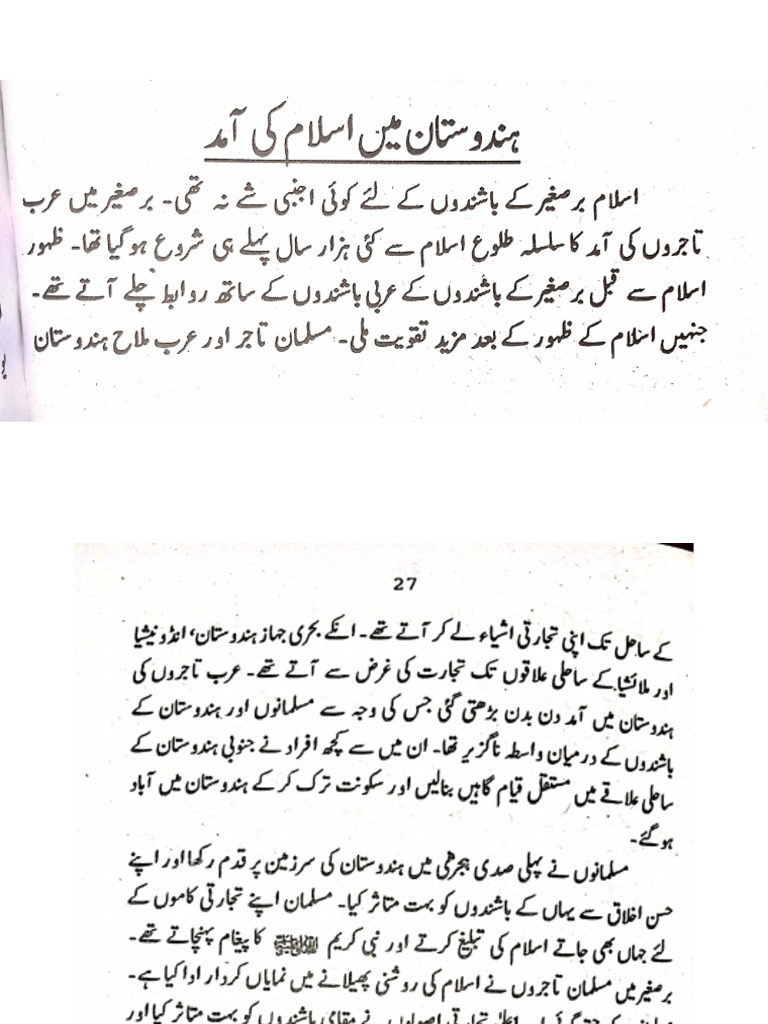 ہندوستان میں اسلام کی آمد
اسلام برصغیر کے باشندوں کے لئے کوئی اجنبی شے نہ تھی۔ برصغیر میں عرب
تاجروں کی آمد کا سلسلہ طلوع اسلام سے کئی ہزار سال پہلے ہی شروع ہو گیا تھا۔ ظہور
اسلام سے قبل برصغیر کے باشندوں کے عربی باشندوں کے ساتھ روابط چلے آتے تھے۔
جنہیں اسلام کے ظہور کے بعد مزید تقویت ملی۔ مسلمان تاجر اور عرب ملاح ہندوستان
27
کے ساحل تک اپنی تجارتی اشیاء لے کر آتے تھے۔ انکے بحری جہاز ہندوستان، انڈونیشیا
اور ملائشیا کے ساحلی علاقوں تک تجارت کی غرض سے آتے تھے۔ عرب تاجروں کی
ہندوستان میں آمد دن بدن بڑھتی گئی جس کی وجہ سے مسلمانوں اور ہندوستان کے
باشندوں کے درمیان واسطہ ناگزیر تھا۔ ان میں سے کچھ افراد نے جنوبی ہندوستان کے
ساحلی علاقے میں مستقل قیام گاہیں بنالیں اور سکونت ترک کر کے ہندوستان میں آباد
ہو گئے۔
مسلمانوں نے پہلی صدی ہجری میں ہندوستان کی سرزمین پر قدم رکھا اور اپنے
حسن اخلاق سے یہاں کے باشندوں کو بہت متاثر کیا۔ مسلمان اپنے تجارتی کاموں کے
لئے جہاں بھی جاتے اسلام کی تبلیغ کرتے اور نبی کریم ﷺ کا پیغام پہنچاتے تھے۔
برصغیر میں مسلمان تاجروں نے اسلام کی روشنی پھیلانے میں نمایاں کردار ادا کیا ہے۔
تجارتی اصولوں نے مقامی باشندوں کو بہت متاثر کیا اور